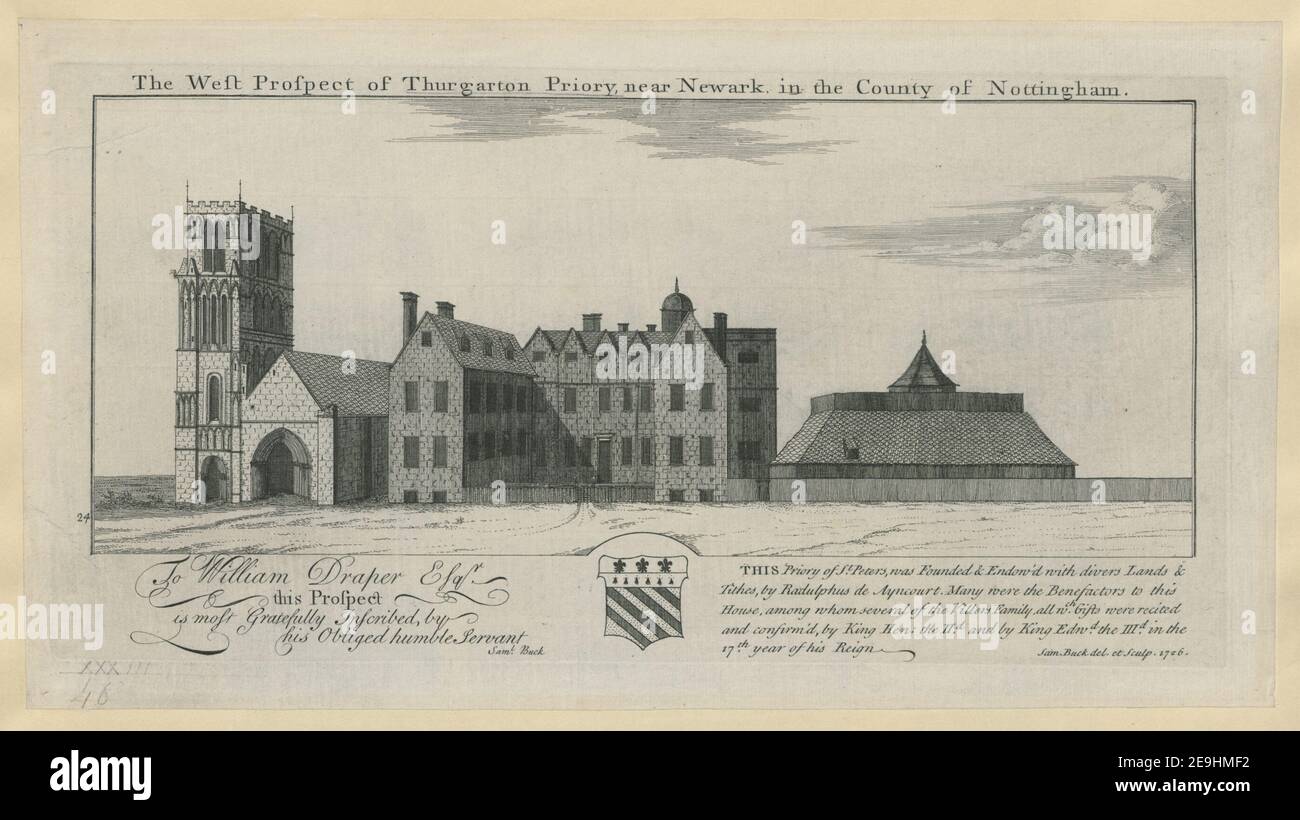 The Weſt Proſpect of Thurgarton Priory, near Newark. in the County of Nottingham.
24
To William Draper Eſqr.
this Proſpect
is moſt Gratefully Inſcribed, by
his Obliged humble Servant
Saml. Buck
THIS Priory of St. Peters, was Founded & Endow'd with divers Lands &
Tithes, by Radulphus de Ayncourt. Many were the Benefactors to this
House, among whom several of the Villars Family, all wch. Gifts were recited
and confirm'd, by King Hen: the IId. and by King Edwd. the IIId. in the
17th year of his Reign
Sam. Buck del. et Sculp. 1726.
XXXIII
46
alamy
Image ID: 2E9HMF2
www.alamy.com